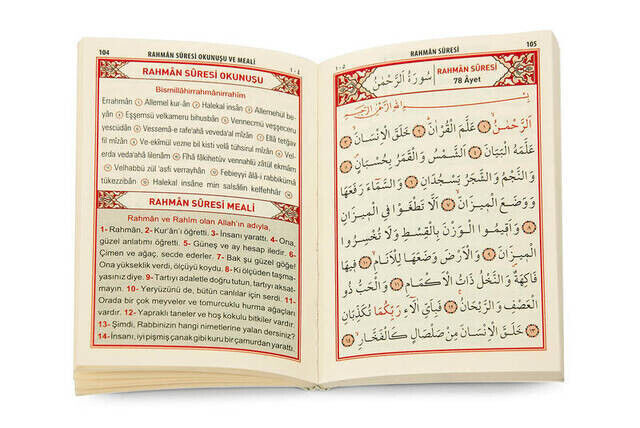 104
RAHMÂN SÛRESİ OKUNUŞU VE MEÂLİ
١٠٤
RAHMÂN SÛRESİ OKUNUŞU
Bismillâhirrahmânirrahîm
Errahmân ① Allemel kur-ân ② Halekal insân ③ Allemehül be-
yân ④ Eşşemsü velkameru bihusbân ⑤ Vennecmü veşşeceru
yescüdân ⑥ Vessemâ-e rafe'ahâ veveda'al mîzân ⑦ Ellâ tetğav
fil mîzân ⑧ Ve-ekîmül vezne bil kisti velâ tühsirul mîzân ⑨ Vel-
erda veda'ahâ lilenâm ⑩ Fîhâ fâkihetüv vennahlü zâtül ekmâm
⑪ Velhabbü zül 'asfi verrayhân ⑫ Febieyyi âlâ-i rabbikümâ
tükezzibân ⑬ Halekal insâne min salsâlin kelfehhâr ⑭
RAHMÂN SÛRESİ MEALİ
Rahmân ve Rahîm olan Allah'ın adıyla,
1- Rahmân, 2- Kur'ân'ı öğretti. 3- İnsanı yarattı. 4- Ona,
güzel anlatımı öğretti. 5- Güneş ve ay hesap iledir. 6-
Çimen ve ağaç, secde ederler. 7- Bak şu güzel göğe!
Ona yükseklik verdi, ölçüyü koydu. 8- Ki ölçüden taşma-
yasınız diye. 9- Tartıyı adaletle doğru tutun, tartıyı aksat-
mayın. 10- Yeryüzünü de, bütün canlılar için serdi. 11-
Orada bir çok meyveler ve tomurcuklu hurma ağaçları
vardır. 12- Yapraklı taneler ve hoş kokulu bitkiler vardır.
13- Şimdi, Rabbinizin hangi nimetlerine yalan dersiniz?
14- İnsanı, iyi pişmiş çanak gibi kuru bir çamurdan yarattı.
١٠٥
RAHMÂN SÛRESİ
105
سُورَةُ الرَّحْمٰنِ
RAHMÂN SÛRESİ
78 Âyet
بِسْمِ اللّٰهِ الرَّحْمٰنِ الرَّحِيمِ
اَلرَّحْمٰنُ ﴿١﴾ عَلَّمَ الْقُرْاٰنَ ﴿٢﴾ خَلَقَ الْاِنْسَانَ ﴿٣﴾
عَلَّمَهُ الْبَيَانَ ﴿٤﴾ اَلشَّمْسُ وَالْقَمَرُ بِحُسْبَانٍ ﴿٥﴾
وَالنَّجْمُ وَالشَّجَرُ يَسْجُدَانِ ﴿٦﴾ وَالسَّمَاءَ رَفَعَهَا
وَوَضَعَ الْمِيزَانَ ﴿٧﴾ اَلَّا تَطْغَوْا فِي الْمِيزَانِ
﴿٨﴾ وَاَقِيمُوا الْوَزْنَ بِالْقِسْطِ وَلَا تُخْسِرُوا
الْمِيزَانَ ﴿٩﴾ وَالْاَرْضَ وَضَعَهَا لِلْاَنَامِ ﴿١٠﴾ فِيهَا
فَاكِهَةٌ وَالنَّخْلُ ذَاتُ الْاَكْمَامِ ﴿١١﴾ وَالْحَبُّ ذُو
الْعَصْفِ وَالرَّيْحَانُ ﴿١٢﴾ فَبِاَيِّ اٰلَاءِ رَبِّكُمَا تُكَذِّبَانِ
﴿١٣﴾ خَلَقَ الْاِنْسَانَ مِنْ صَلْصَالٍ كَالْفَخَّارِ ﴿١٤﴾